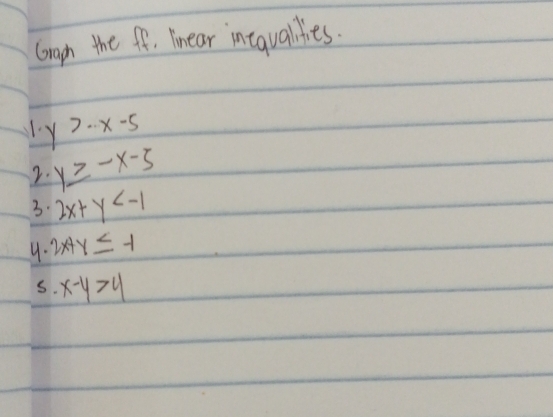 Graph the ff. linear inequalities.
1. y > -x -5
2. y ≥ -x-5
3. 2x+ y < -1
4. 2x+y ≤ -1
5. x-y >4